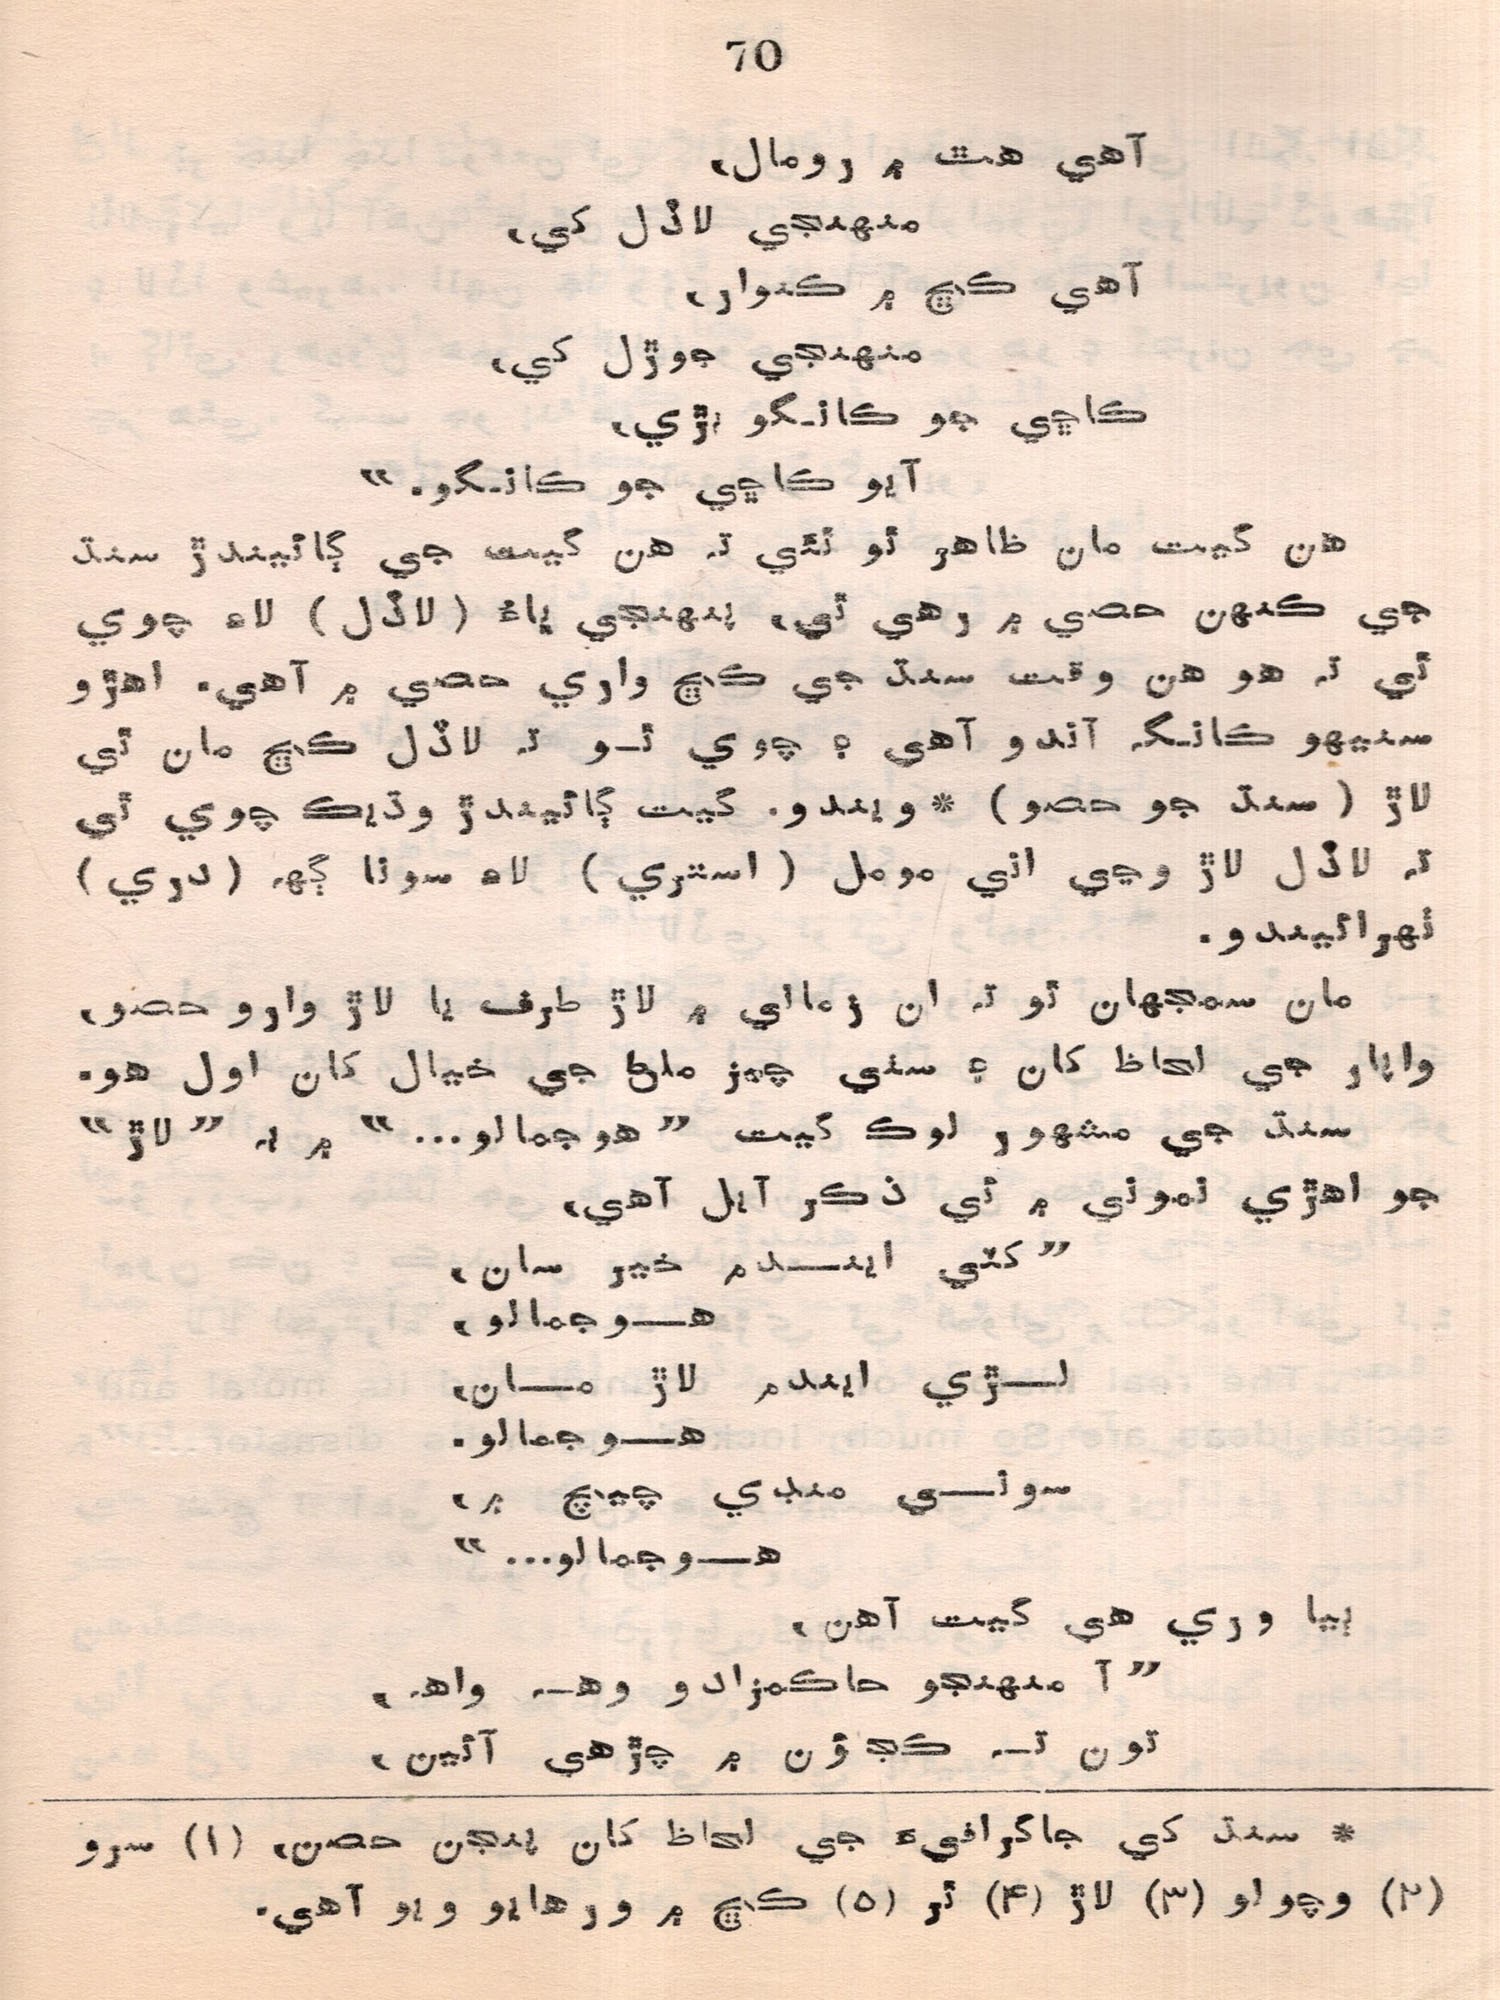 70
آهي هٿ ۾ رومال،
منهنجي لاڏل کي،
آهي ڪڇ ۾ ڪنوار،
منهنجي جوڙل کي،
ڪاڇي جو ڪانـگو ٻڙي،
آيو ڪاڇي جو ڪانـگو.“
هن گيت مان ظاهر ٿو ٿئي ته هن گيت جي ڳائيندڙ سنڌ
جي ڪنهن حصي ۾ رهي ٿي، پنهنجي ڀاءُ (لاڏل) لاءِ چوي
ٿي ته هو هن وقت سنڌ جي ڪڇ واري حصي ۾ آهي. اهڙو
سنيهو ڪانـگ آندو آهي ۽ چوي ٿـو ته لاڏل ڪڇ مان ٿي
لاڙ (سنڌ جو حصو) *ويندو. گيت ڳائيندڙ وڌيڪ چوي ٿي
ته لاڏل لاڙ وڃي اتي مومل (استري) لاءِ سونا ڳهه (دري)
ٺهرائيندو.
مان سمجهان ٿو ته ان زماني ۾ لاڙ طرف يا لاڙ وارو حصو،
واپار جي لحاظ کان ۽ سٺي چيز ملڻ جي خيال کان اول هو.
سنڌ جي مشهور لوڪ گيت ”هوجمالو...“ ۾ به ”لاڙ“
جو اهڙي نموني ۾ ئي ذڪر آيل آهي،
”کٽي اينـــدم خير سان،
هـــوجمالو،
لـــڙي ايندم لاڙ مـــان،
هـــوجمالو.
سونـــي منڊي چيچ ۾،
هـــوجمالو...“
ٻيا وري هي گيت آهن،
”آ منهنجو حاڪمزادو وهـ واهه،
تون تـه ڪڇؤن ۾ چڙهي آئين،
* سنڌ کي جاگرافيءَ جي لحاظ کان پنجن حصن، (۱) سرو
(۲) وچولو (۳) لاڙ (۴) ٿر (۵) ڪڇ ۾ ورهايو ويو آهي.